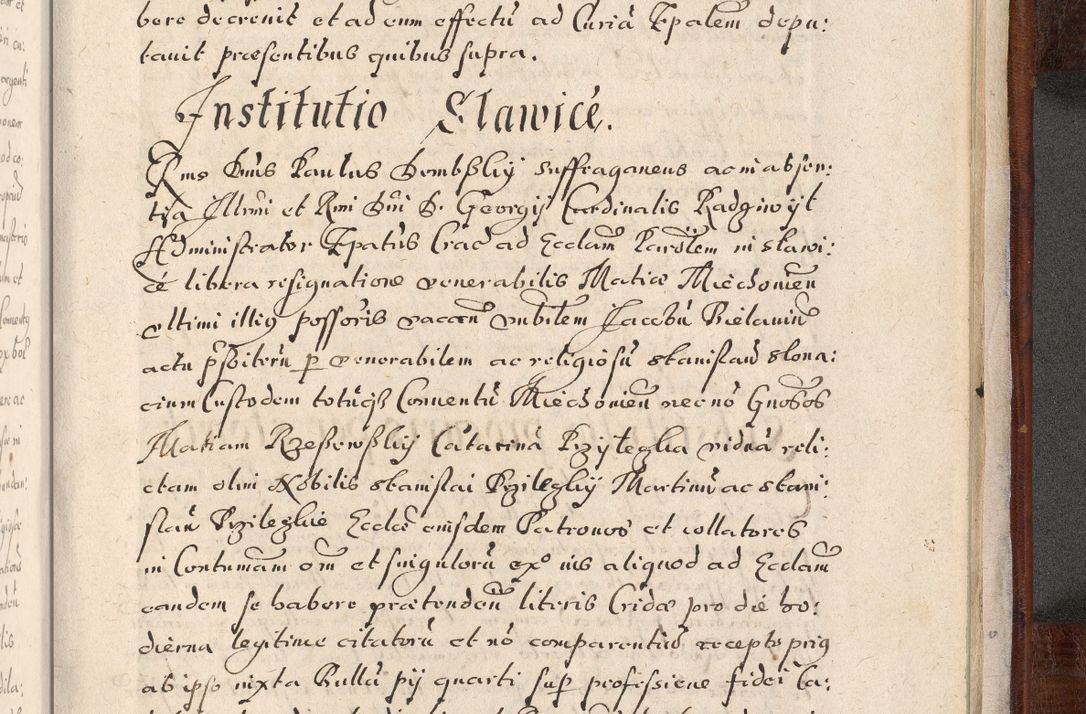 bere decrevit et ad eum effectū ad Curiā Epalem depu:
tavit præsentibus quibus supra.
Institutio Slawice.
Rms Dnūs Paulus Dembsky Suffraganeus ac in absen:
tia Illrmi et Rmi Dni D. Georgij Cardinalis Radziwyt
Administrator Epatus Crac ad Eccłam Parōlem in slawi:
cé libera resignatione venerabilis Matiæ Miechovien
ultimi illi9 possoris vacan nobilem Jacobū Bielawiū
actu p̄sbiterū p venerabilem ac religiosū Stanislaū slona:
cium Custodem totiusq Conventū Miechovien necnō Gnosos
Matiam Rzeszewsky Catarinā Przyleglia viduā reli:
ctam olim Nobilis Stanislai Przilegly Martinū ac Stani:
slaū Przileglie Ecclæ eiusdem Patronos et collatores
in Contumām om et singulorū ex9 ius aliquod ad Ecclam
eandem se habere prætenden literis Cridæ pro die ho:
dierna legitime citatorū et nō comparentiū recepto prius
ab ipso iuxta Bullā pij quarti sup professione fidei Ca: